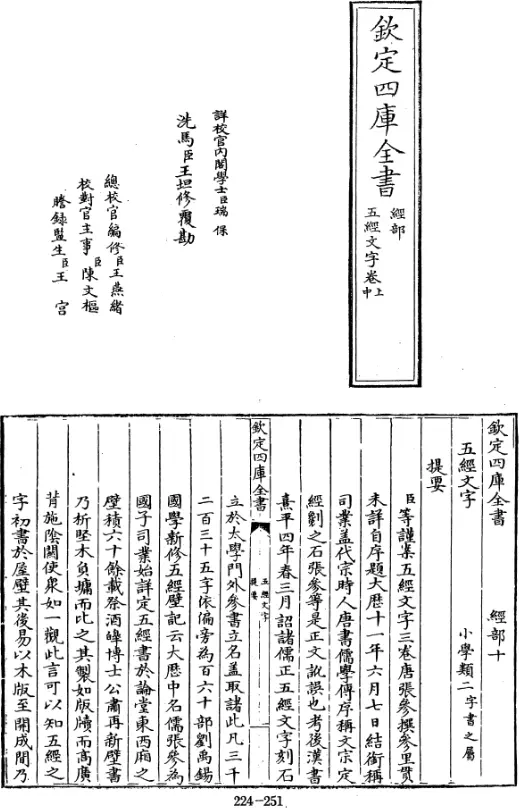 欽定四庫全書
經部
五經文字卷上中
詳校官內閣學士臣瑞保
洗馬臣王坦修覆勘
總校官編修臣王燕緒
校對官主事臣陳文樞
謄錄監生臣王宮
欽定四庫全書
經部十
五經文字
小學類二字書之屬
提要
臣等謹案五經文字三卷唐張參撰參里貫
未詳自序題大厯十一年六月七日結銜稱
司業盖代宗時人唐書儒學傳序稱文宗定
經劖之石張參等是正文訛誤也考後漢書
熹平四年春三月詔諸儒正五經文字刻石
欽定四庫全書
五經文字
提要
立於太學門外參書立名盖取諸此凡三千
二百三十五字依偏旁為百六十部劉禹錫
國學新修五經壁記云大厯中名儒張參為
國子司業始詳定五經書於論堂東西廂之
壁積六十餘載祭酒皥博士公肅再新壁書
乃析堅木負墉而比之其製如版牘而高廣
背施陰關使衆如一觀此言可以知五經之
字初書於屋壁其後易以木版至開成間乃
224-251